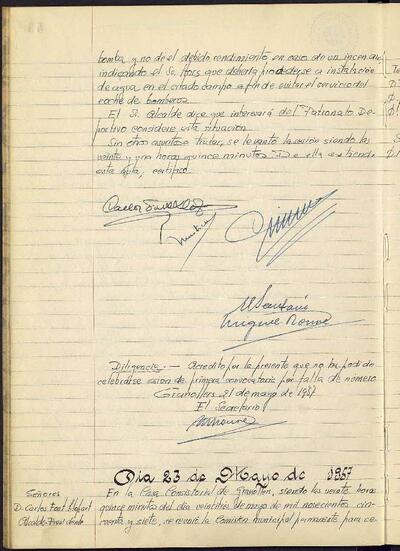 bomba y no de el debido rendimiento en caso de un incendio
indicando el Sr. Mars que debería procederse a instalación
de agua en el citado campo a fin de evitar el servicio del
coche de bomberos
El Sr. Alcalde dice que interesará del Patronato De-
portivo considere esta situación.
Sin otros asuntos a tratar, se levantó la sesión siendo las
veinte y una horas quince minutos de ella se extiende
esta acta, certifico.
El Secretario
Miguel
Diligencia.— Acredito por la presente que no ha podido
celebrarse sesion de primera convocatoria por falta de numero
Granollers 21 de mayo de 1957
El Secretario
Dia 23 de Mayo de 1957
Señores
D. Carlos Font Llopart
Alcalde-Presidente
En la Casa Consistorial de Granollers, siendo las veinte horas
quince minutos del dia veintitres de mayo de mil novecientos cin-
cuenta y siete, se reunió la Comisión municipal permanente para ce-